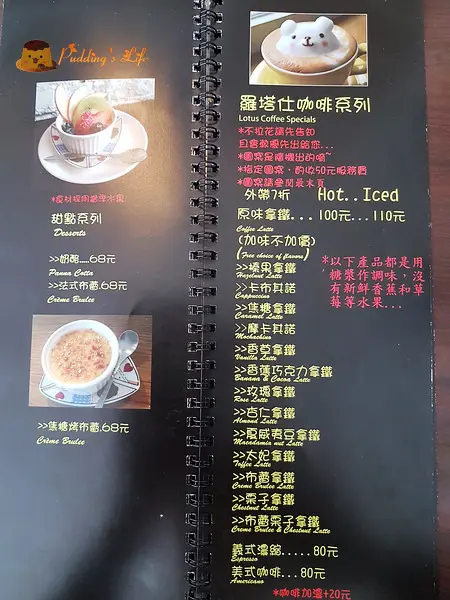 Pudding's Life
*食材採用當季水果
甜點系列
Desserts
>>奶酪....68元
Panna Cotta
>>法式布蕾.68元
Crème Brulee
>>焦糖烤布蕾.68元
Crème Brulee
羅塔仕咖啡系列
Lotus Coffee Specials
*不拉花請先告知
且會軟優先出給您...
*圖案是隨機出的唷~
*指定圖案，酌收50元服務費
*圖案請參閱最末頁
外帶7折 Hot..Iced
原味拿鐵...100元...110元
Coffee Latte
(加味不加價)
(Free choice of flavors)
>>榛果拿鐵
Hazelnut Latte
>>卡布其諾
Cappuccino
>>焦糖拿鐵
Caramel Latte
>>摩卡其諾
Mochachino
>>香草拿鐵
Vanilla Latte
>>香蕉巧克力拿鐵
Banana & Cocoa Latte
>>玫瑰拿鐵
Rose Latte
>>杏仁拿鐵
Almond Latte
>>夏威夷豆拿鐵
Macadamia nut Latte
>>太妃拿鐵
Toffee Latte
>>布蕾拿鐵
Creme Brulee Latte
>>栗子拿鐵
Chestnut Latte
>>布蕾栗子拿鐵
Creme Brulee & Chestnut Latte
*以下產品都是用
糖漿作調味，沒
有新鮮香蕉和草
莓等水果...
義式濃縮.....80元
Espresso
美式咖啡...80元
Americano
*咖啡加濃+20元